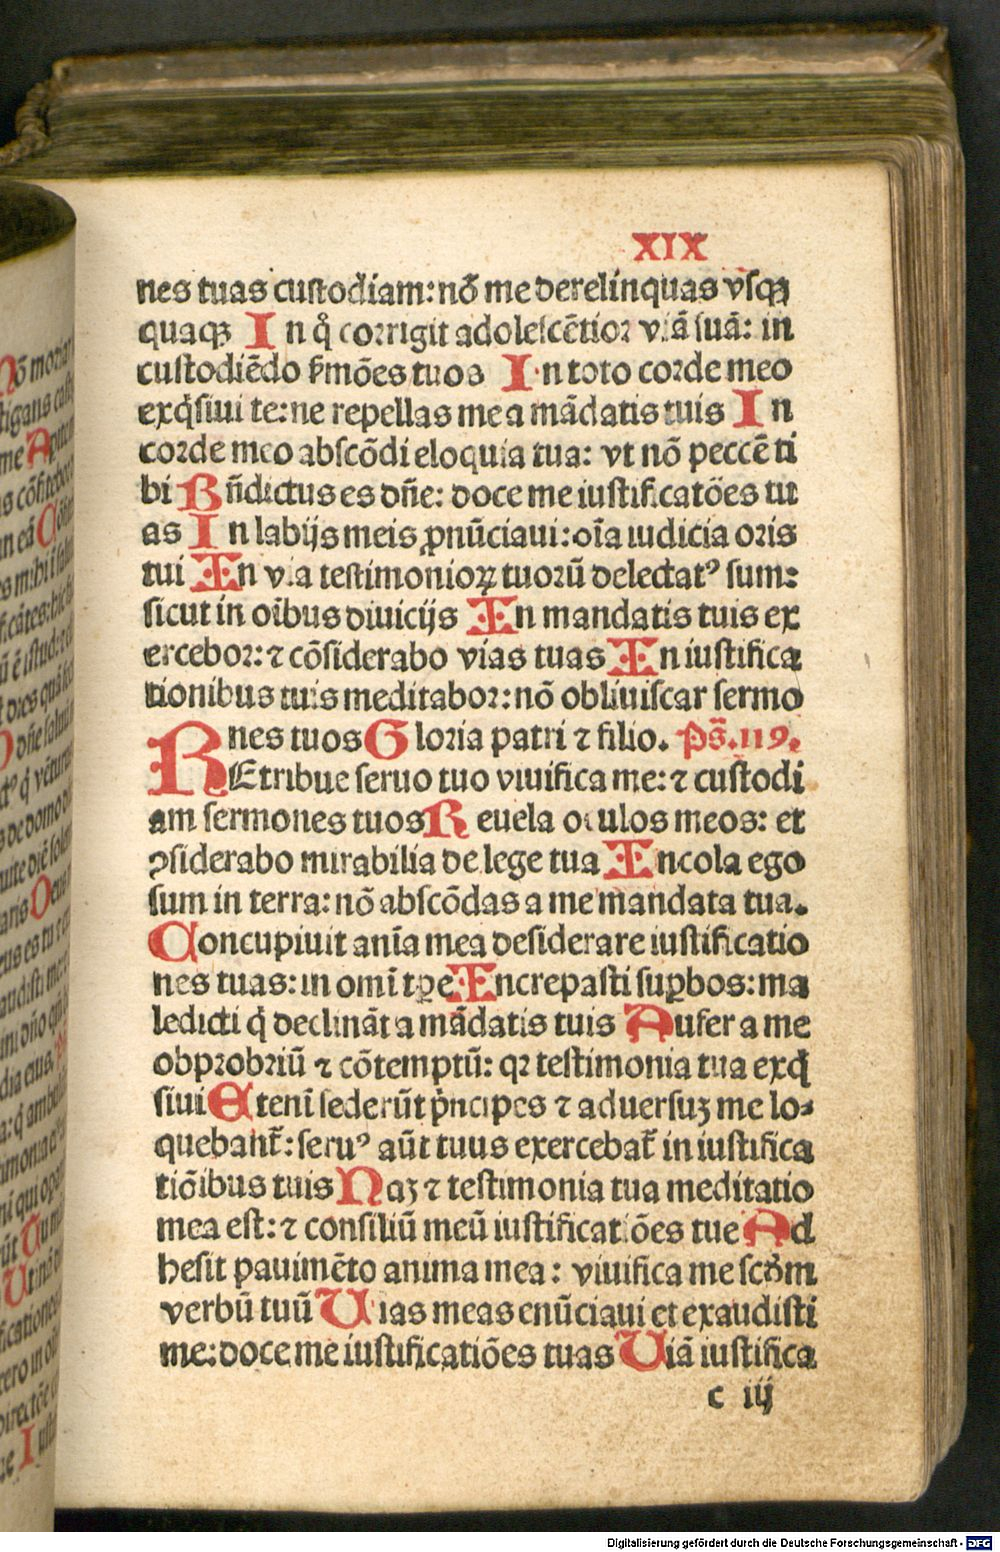 XIX
nes tuas custodiam: nō me derelinquas vsqꝫ
quaqꝫ In q̊ corrigit adolescētior viā suā: in
custodiēdo ẜmōes tuos In toto corde meo
exq̇siui te: ne repellas me a mādatis tuis In
corde meo abscōdi eloquia tua: vt nō peccē ti
bi Bn̄dictus es dn̄e: doce me iustificatōes tu
as In labijs meis ꝓnūciaui: oīa iudicia oris
tui In via testimonioꝝ tuorū delectatꝰ sum:
sicut in oībus diuicijs In mandatis tuis ex
ercebor: ⁊ cōsiderabo vias tuas In iustifica
tionibus tuis meditabor: nō obliuiscar sermo
nes tuos Gloria patri ⁊ filio. Ps̄. 119.
REtribue seruo tuo viuifica me: ⁊ custodi
am sermones tuos Reuela oculos meos: et
ꝯsiderabo mirabilia de lege tua Incola ego
sum in terra: nō abscōdas a me mandata tua.
Concupiuit anīa mea desiderare iustificatio
nes tuas: in omī tꝑe Increpasti suꝑbos: ma
ledicti q̇ declināt a mādatis tuis Aufer a me
obprobriū ⁊ cōtemptū: qꝛ testimonia tua exq̇
siui Etenī sederūt pͥncipes ⁊ aduersuꝫ me lo⸗
quebant᷑: seruꝰ aūt tuus exercebat᷑ in iustifica
tiōibus tuis Naꝫ ⁊ testimonia tua meditatio
mea est: ⁊ consiliū meū iustificatiōes tue Ad
hesit pauimēto anima mea: viuifica me scd̓m
verbū tuū Uias meas enūciaui et exaudisti
me: doce me iustificatiōes tuas Uiā iustifica
c iij
Digitalisierung gefördert durch die Deutsche Forschungsgemeinschaft - DFG